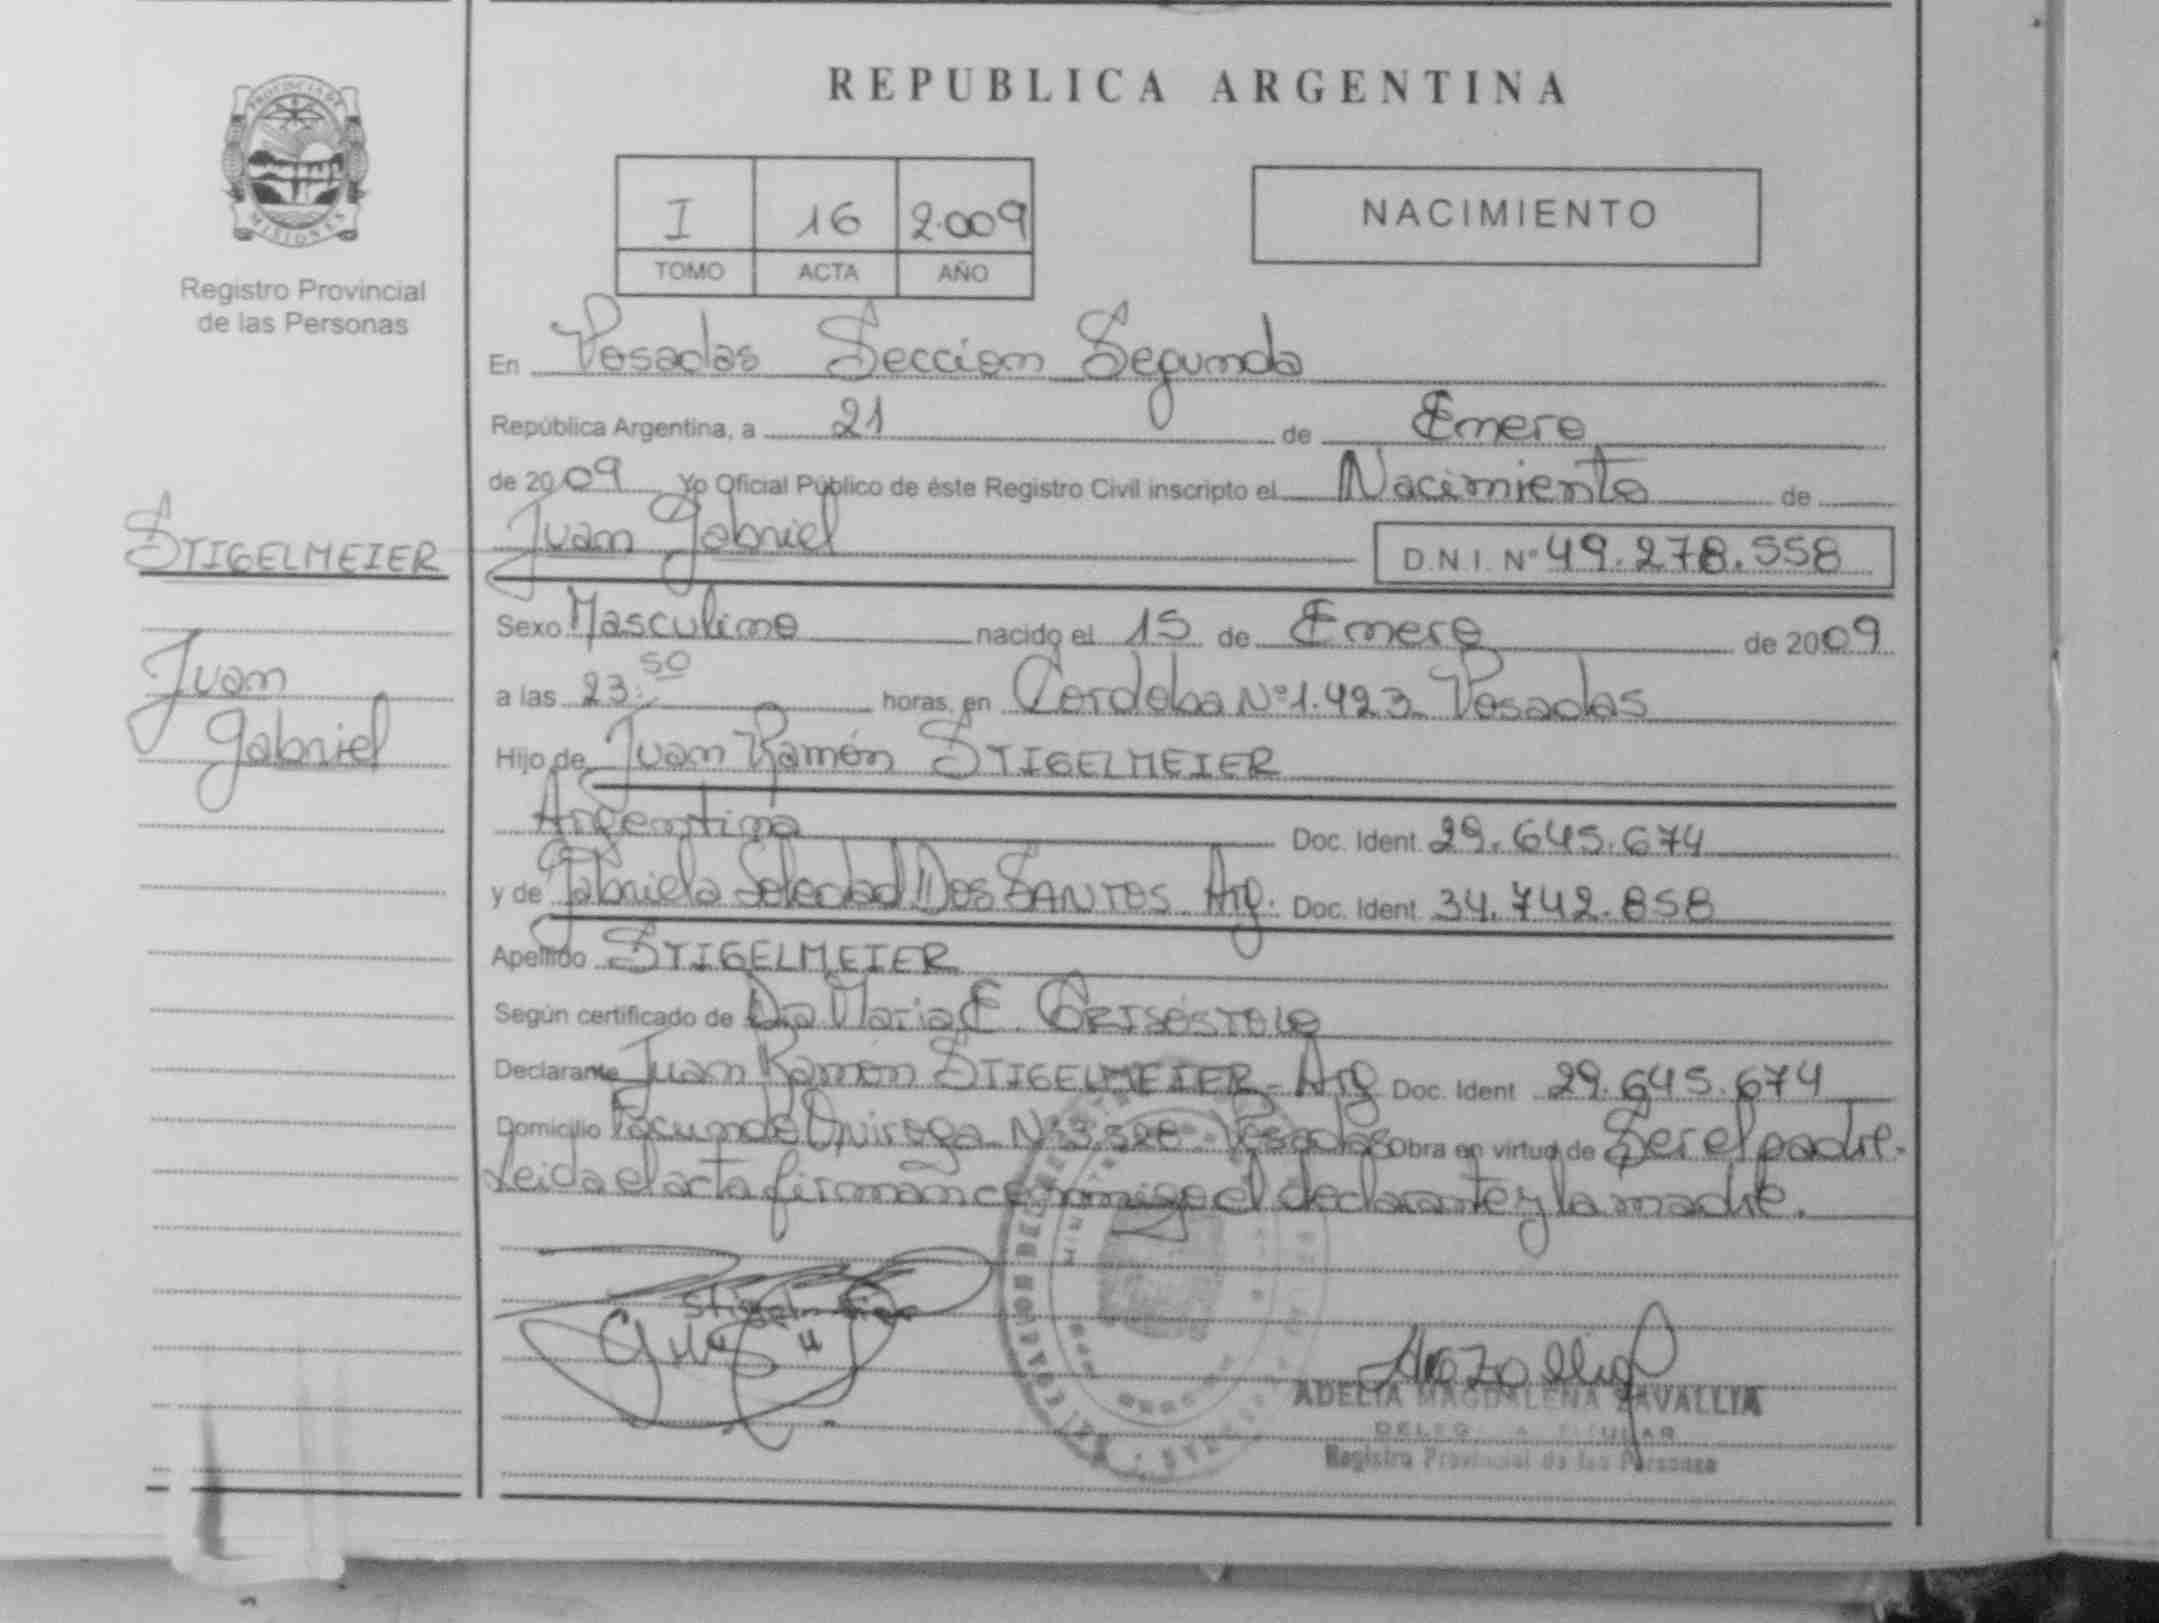 REPUBLICA ARGENTINA
PROVINCIA DE
MISIONES
Registro Provincial
de las Personas
I 16 2.009
TOMO ACTA AÑO
NACIMIENTO
En Posadas Seccion Segunda
República Argentina, a 21 de Enero
de 2009 Yo Oficial Público de éste Registro Civil inscripto el Nacimiento de
Juan Gabriel D.N.I. Nº 49.278.558
STIGELMEIER
Juan
Gabriel
Sexo Masculino nacido el 15 de Enero de 2009
a las 23:50 horas, en Cordoba Nº 1.423 Posadas
Hijo de Juan Ramón STIGELMEIER
Argentina Doc. Ident. 29.645.674
y de Gabriela Soledad DOS SANTOS Arg. Doc. Ident. 34.742.858
Apellido STIGELMEIER
Según certificado de Dra Maria E.
Declarante Juan Ramón STIGELMEIER - Arg Doc. Ident 29.645.674
Domicilio Facundo Quiroga Nº Posadas Obra en virtud de Ser el padre.
Leida el acta firman conmigo el declarante y la madre.
ADELIA MAGDALENA ZAVALLIA
DELEGADA TITULAR
Registro Provincial de las Personas